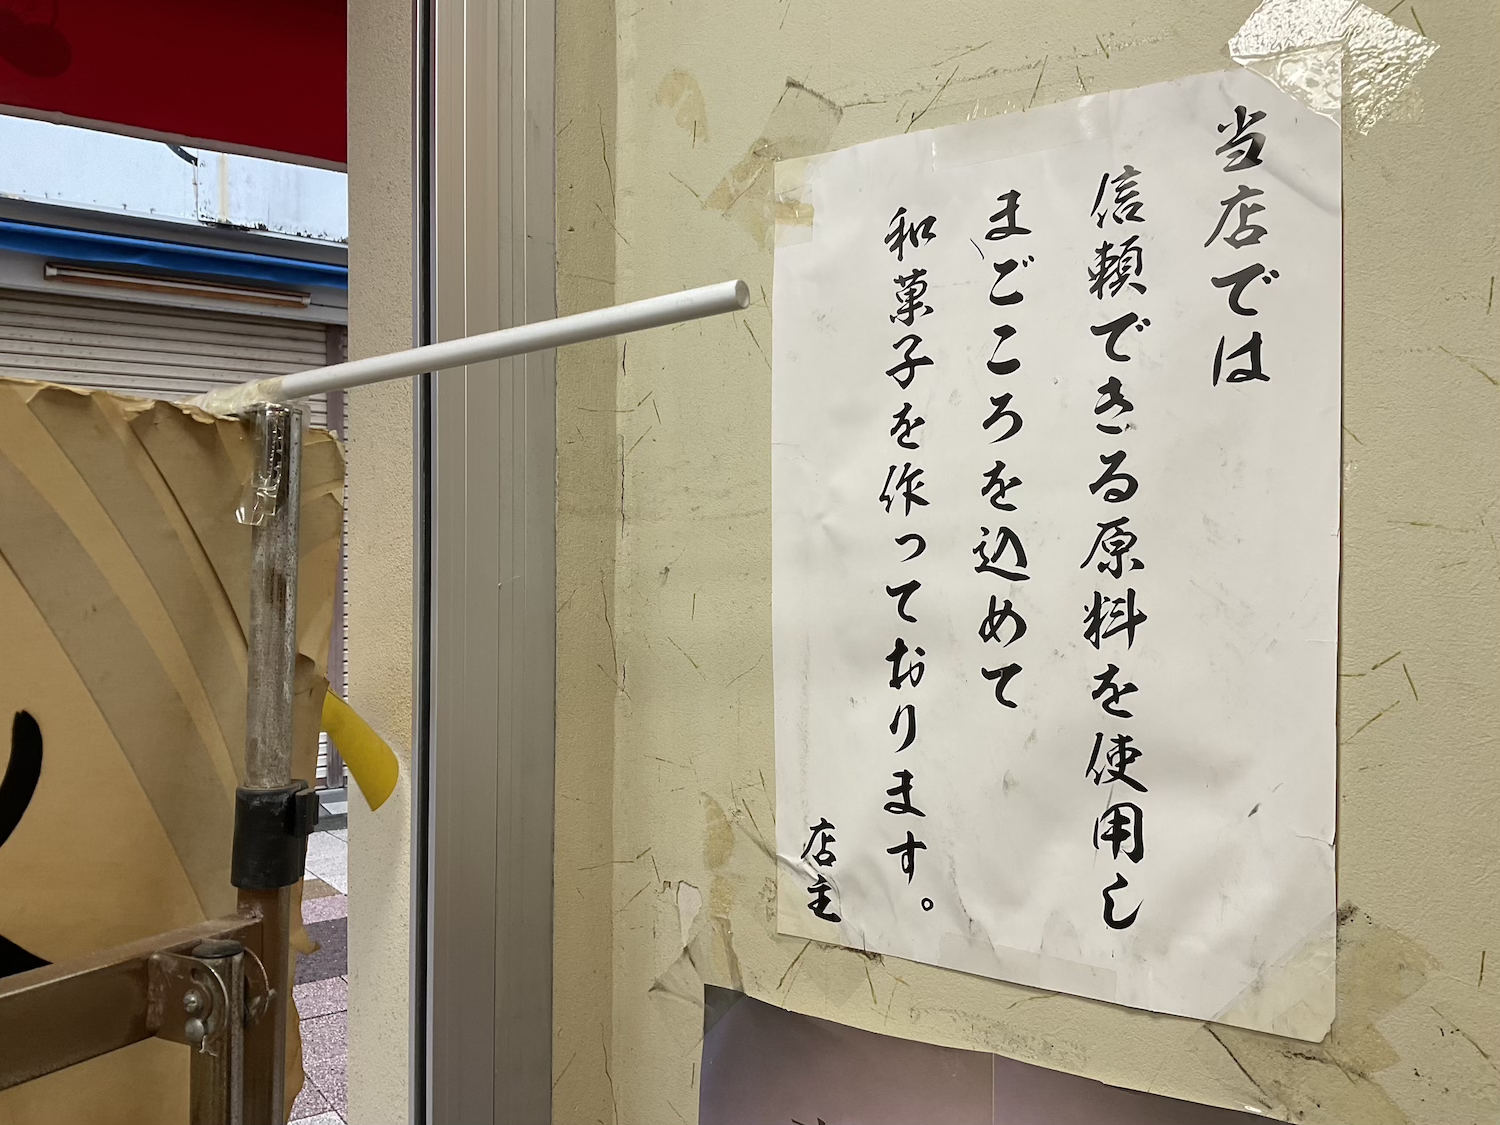 当店では
信頼できる原料を使用し
まごころを込めて
和菓子を作っております。
店主